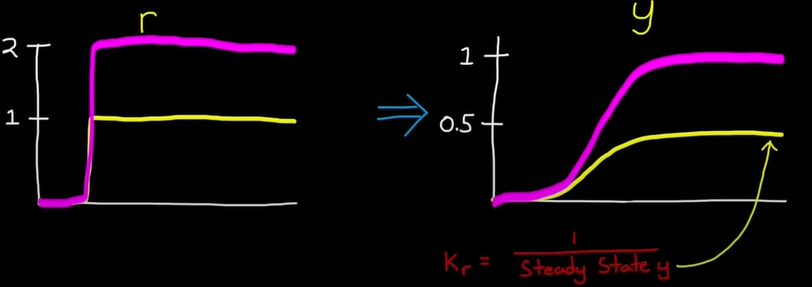 r
2
1
y
1
0.5
Kr = 1 / Steady State y